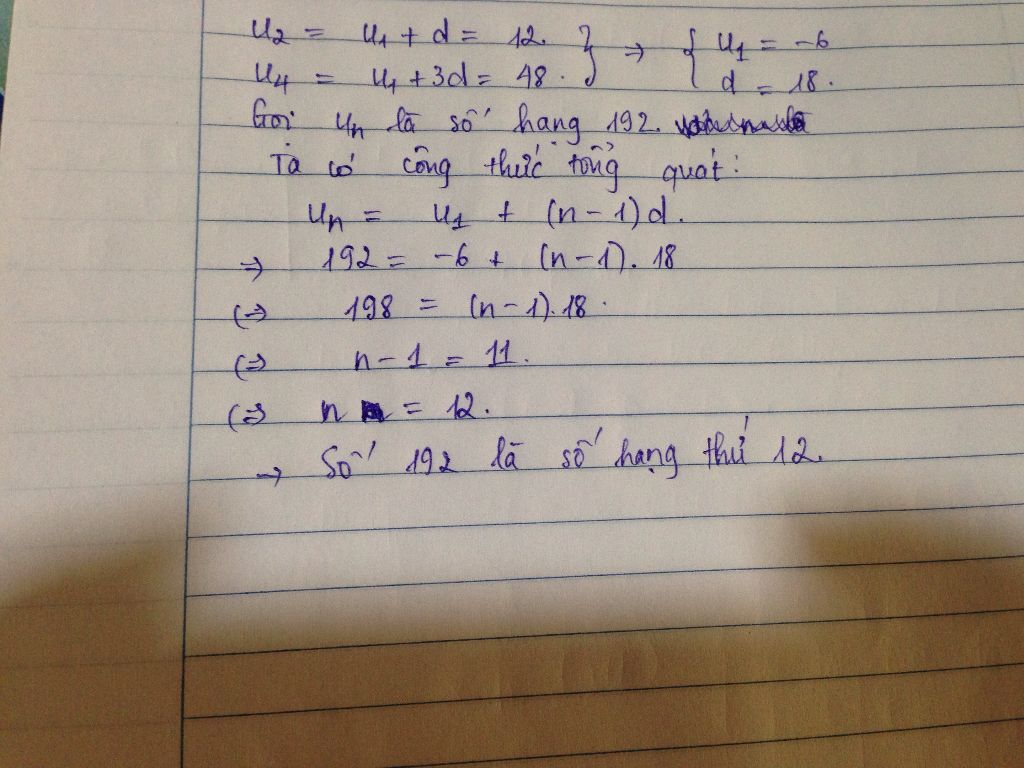 u₂ = u₁ + d = 12. } ⇒ { u₁ = -6
u₄ = u₁ + 3d = 48. } { d = 18.
Gọi uₙ là số hạng 192.
Ta có công thức tổng quát:
uₙ = u₁ + (n-1)d.
⇒ 192 = -6 + (n-1). 18
(⇒ 198 = (n-1).18.
(⇒ n-1 = 11.
(⇒ n = 12.
→ Số 192 là số hạng thứ 12.